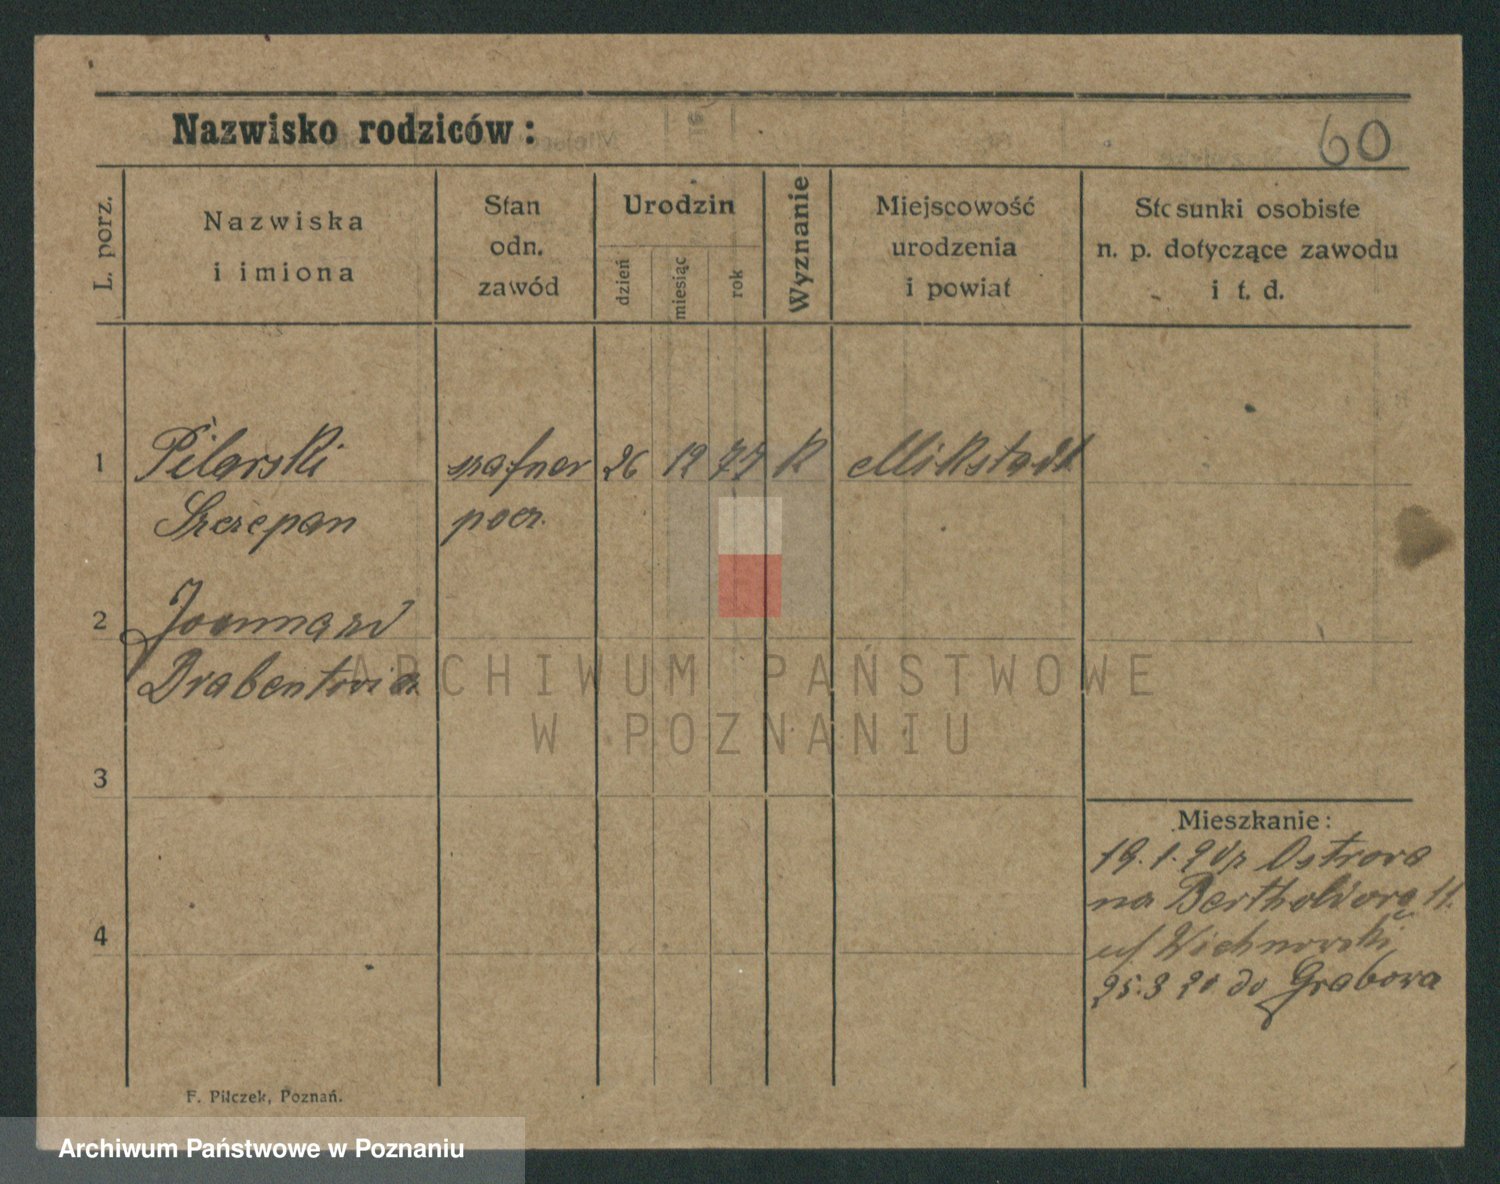 Nazwisko rodziców:
60
L. porz.
Nazwiska
i imiona
Stan
odn.
zawód
Urodzin
dzień
miesiąc
rok
Wyznanie
Miejscowość
urodzenia
i powiat
Stosunki osobiste
n. p. dotyczące zawodu
i t. d.
1
Pilarski szafner 26 12 77 k Mikstadt
Szczepan pocz.
2
Joanna zd
Drabentowicz
ARCHIWUM PAŃSTWOWE
W POZNANIU
3
4
Mieszkanie:
19.1.20 z Ostrowa
na 11.
u/ Wichnowski
25.3 20 do Grabowa
F. Pilczek, Poznań.
Archiwum Państwowe w Poznaniu